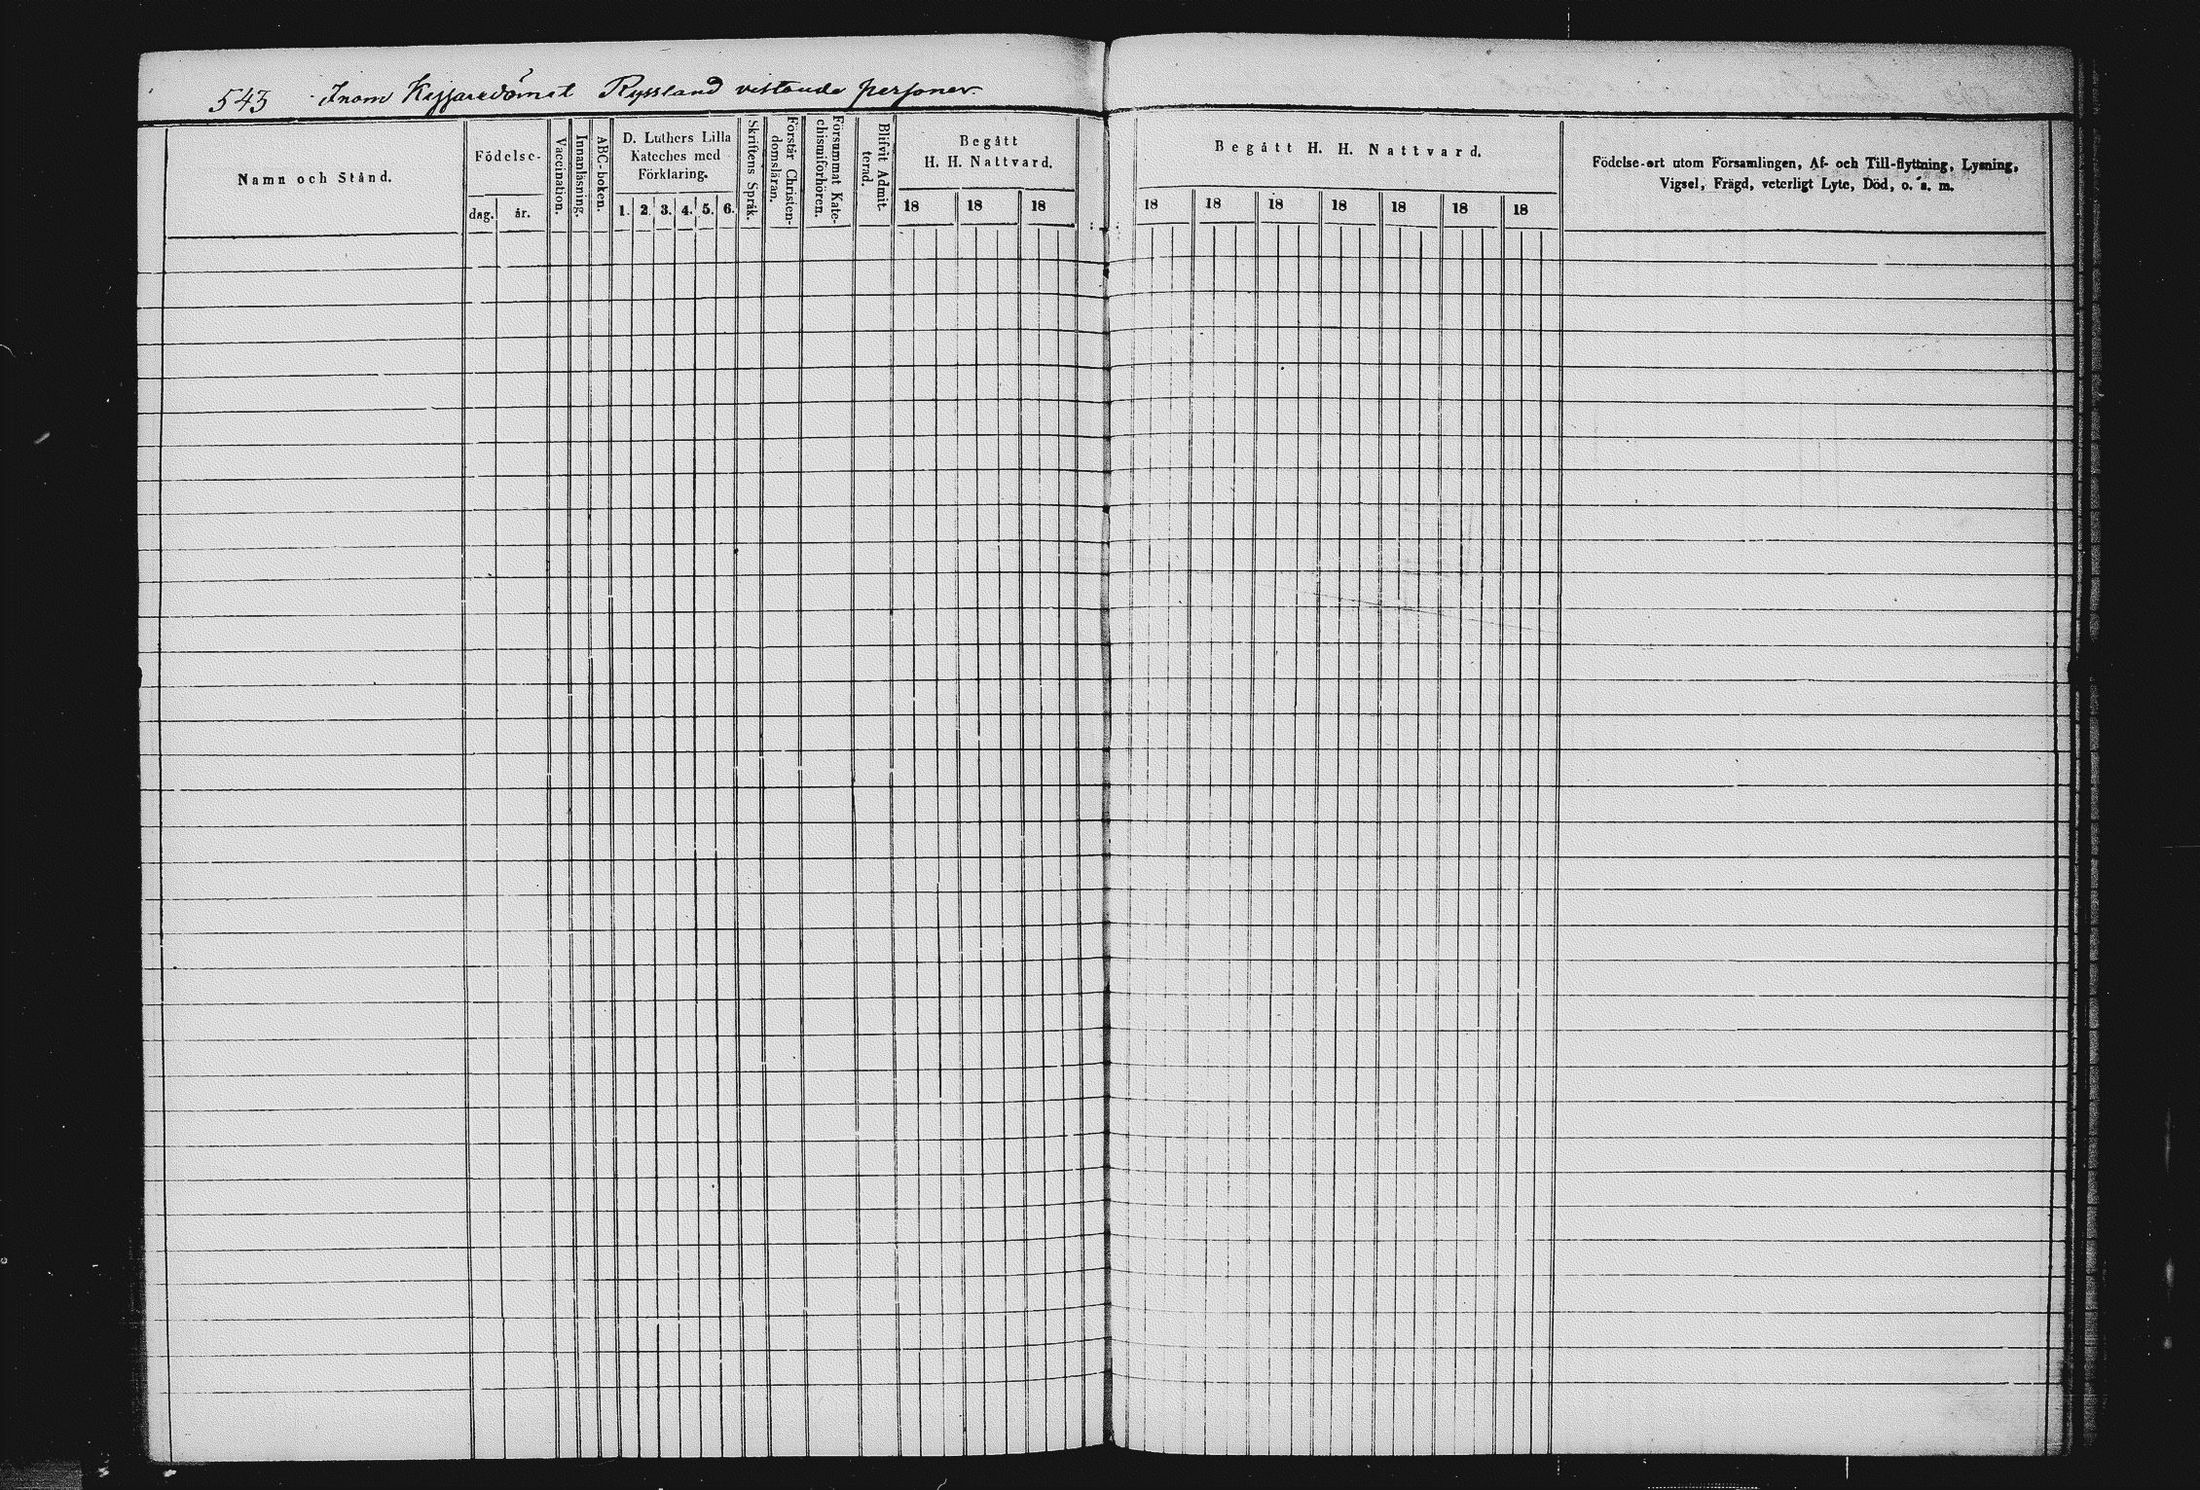 543 Inom Kejsaredömet Ryssland vistande personer
Namn och Stånd.
Födelse-
dag.
år.
Vaccination.
Innanläsning.
ABC-boken.
D. Luthers Lilla
Kateches med
Förklaring.
1. 2. 3. 4. 5. 6.
Skriftens Språk.
Förstår Christen-
domsläran.
Försummat Kate-
chismiförhören.
Blifvit Admit-
terad.
Begått
H. H. Nattvard.
18 18 18
Begått H. H. Nattvard.
18 18 18 18 18 18 18
Födelse-ort utom Församlingen, Af- och Till-flyttning, Lysning,
Vigsel, Frägd, veterligt Lyte, Död, o. s. m.